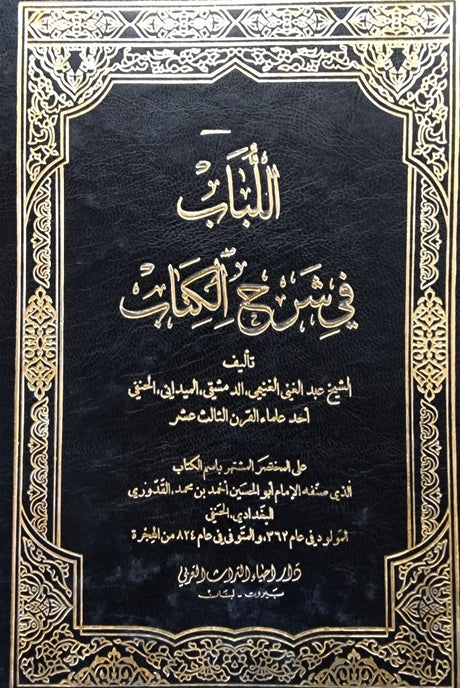 اللُّبَابُ
فِي شَرْحِ الْكِتَابِ
تأليف
الشيخ عبد الغني الغنيمي، الدمشقي، الميداني، الحنفي
أحد علماء القرن الثالث عشر
على المختصر المشتهر باسم الكتاب
الذي صنفه الإمام أبو الحسين أحمد بن محمد، القدوري
البغدادي، الحنفي
المولود في عام ٣٦٢، والمتوفى في عام ٨٢٤ من الهجرة
دار احياء التراث العربي
بيروت - لبنان